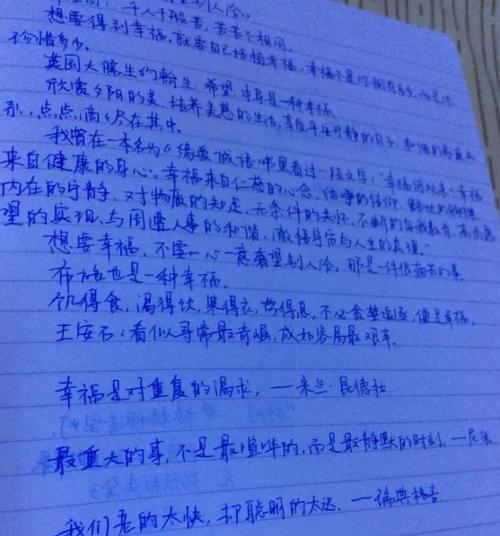 千人千般苦,苦苦不相同。
想要得到幸福,就要自己培植幸福,幸福不是你拥有多少,而是你
珍惜多少。
英国大儒生约翰生:希望,本身是一种幸福。
欣赏夕阳的美,培养美感的生活,享受平安宁静的日子,
形,点点滴滴尽在其中。
我曾在一本名为《 》里看过一段文字:"幸福何处来,幸福
来自健康的身心。幸福来自仁慈的心念,
内在的宁静,对物质的知足,无条件的关怀,不断的自我教育,
望的实现,与周遭人事的和谐,
想要幸福,不要一心一意奢望别人给,那是一件很痛苦的事。
布施也是一种幸福。
饥得食,渴得饮,寒得衣,劳得息,不必贪婪追逐,便是幸福。
王安石:看似寻常最奇崛,成如容易最艰辛。
幸福是对重复的渴求,——米兰·昆德拉
最重大的事,不是最喧哗的,而是最静默的时刻,——尼采
我们老的太快,却聪明的太迟,——瑞典格言